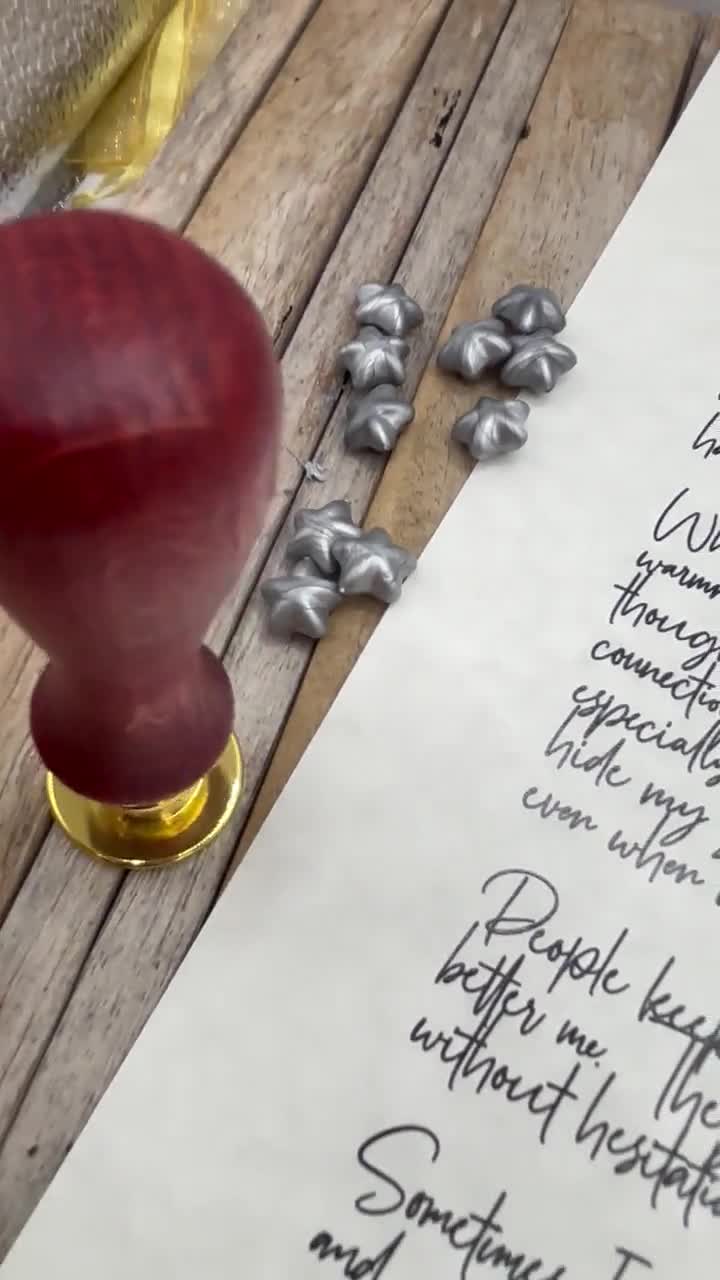 thoug
connectio
especially
hide my
even when
People keep
better me. The
without hesitatio
Sometimes I
and